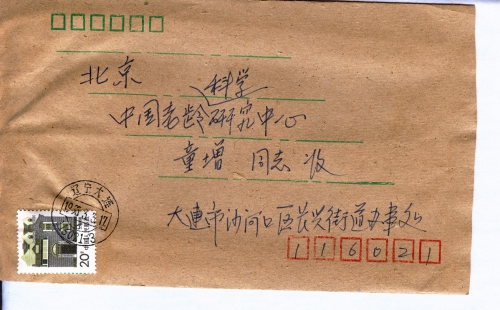 北京
科学
中国老龄研究中心
童增 同志 收
大連市沙河口区长兴街道办事处
116021
辽宁大连
20分